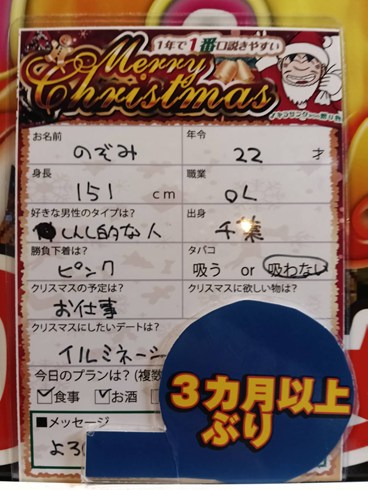 1年で1番口説きやすい
Merry
Christmas
お名前
のぞみ
年令
22 才
身長
151 cm
職業
OL
好きな男性のタイプは?
しんし的な人
出身
千葉
勝負下着は?
ピンク
タバコ
吸う or 吸わない
クリスマスの予定は?
お仕事
クリスマスに欲しい物は?
クリスマスにしたいデートは?
イルミネーシ
今日のプランは?(複数
食事 お酒
■メッセージ
よろし
3カ月以上
ぶり